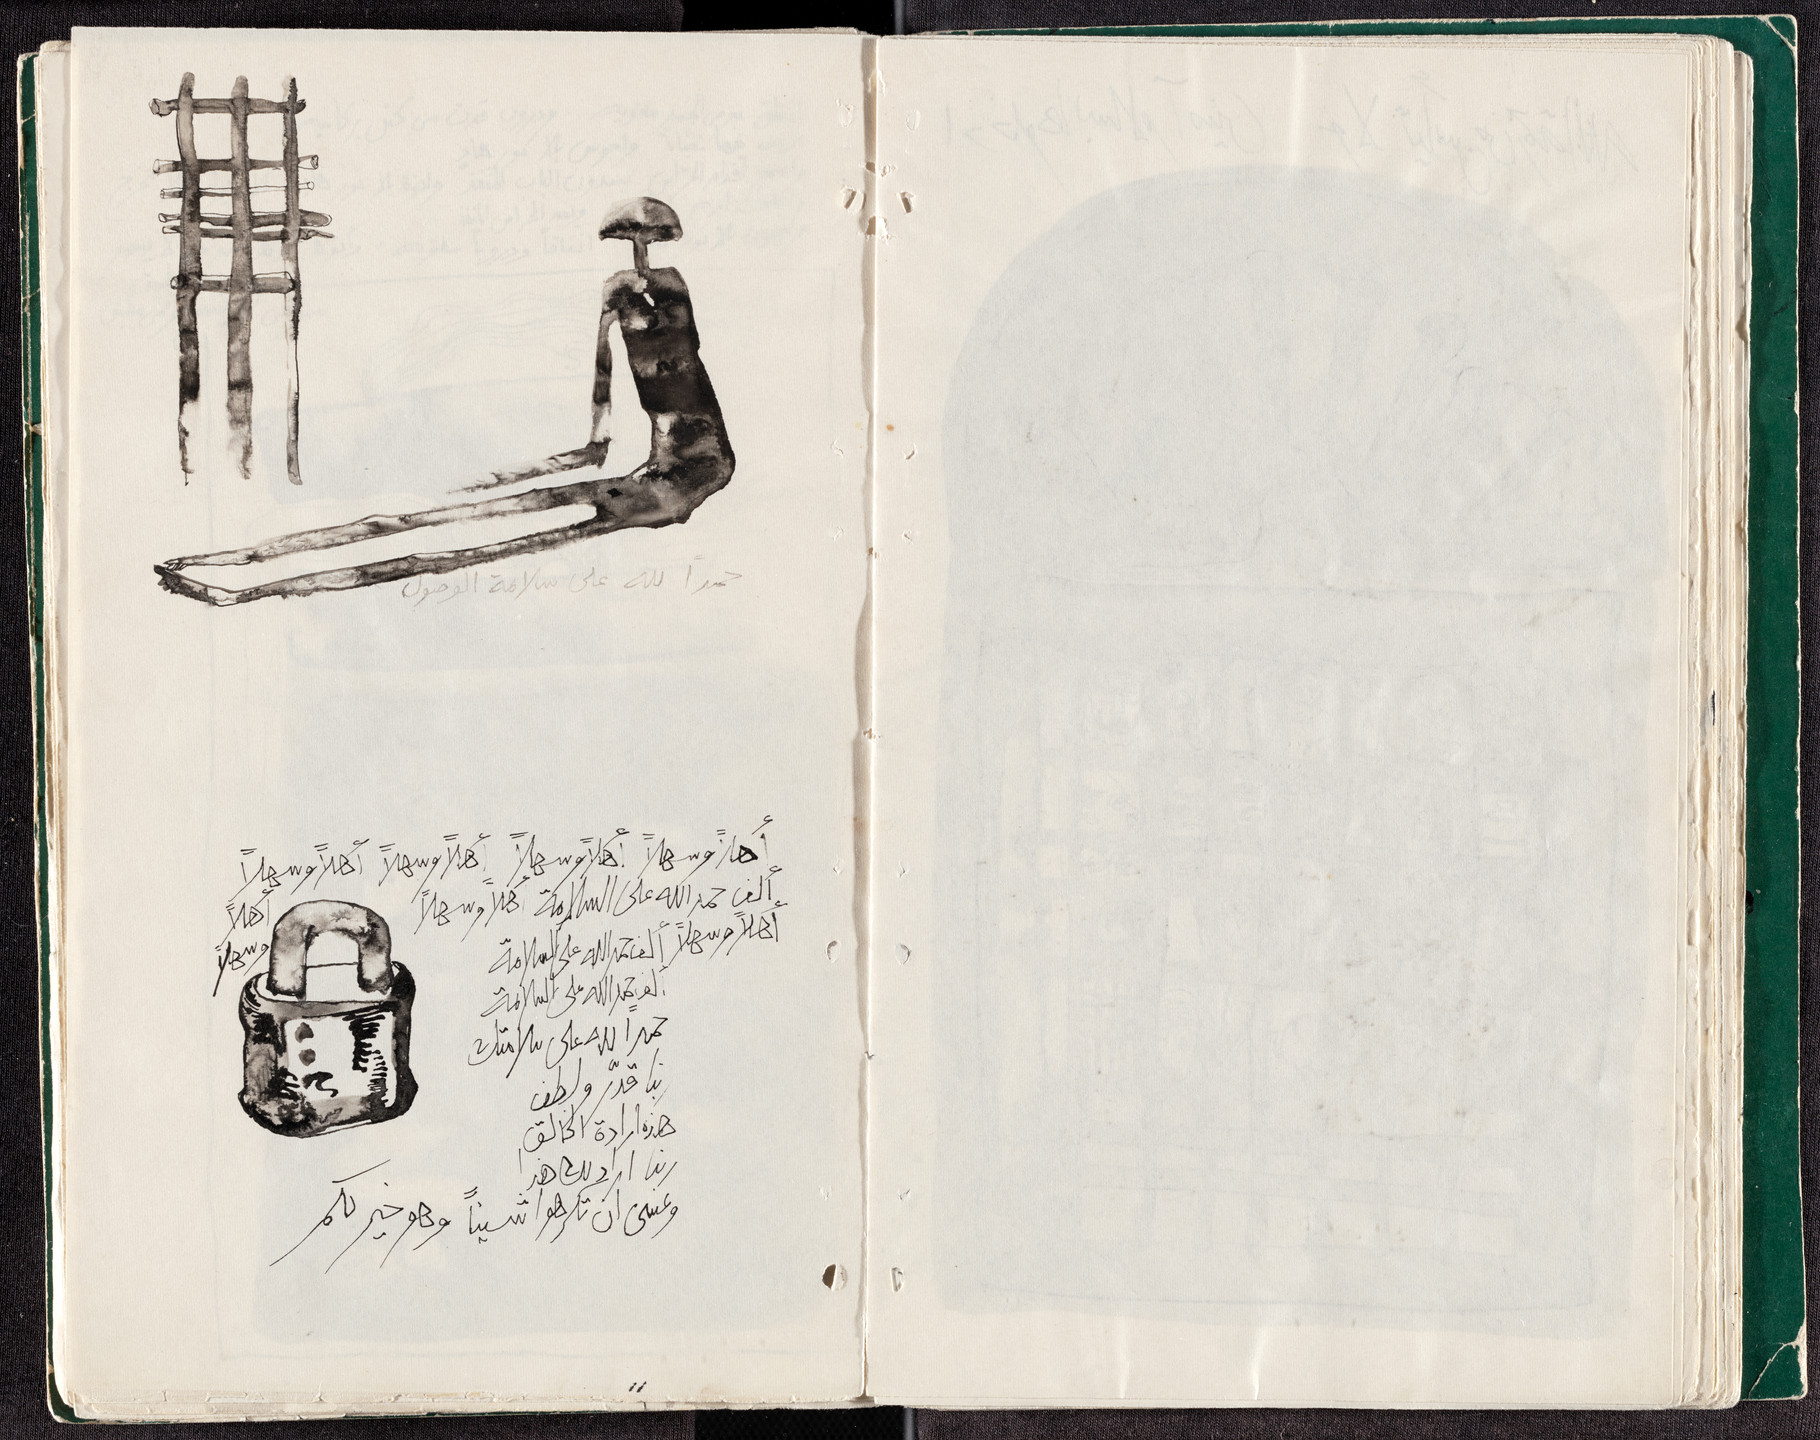 حمداً لله على سلامة الوصول
أهلاً وسهلاً أهلاً وسهلاً أهلاً وسهلاً أهلاً وسهلاً
ألف حمد الله على السلامة أهلاً وسهلاً أهلاً
أهلاً وسهلاً ألف حمد الله على السلامة وسهلاً
ألف حمد الله على السلامة
حمداً لله على سلامتك
ربنا قدّر ولطف
هذه ارادة الخالق
ربنا اراد لك هذا
وعسى ان تكرهوا شيئاً وهو خير لكم
١١